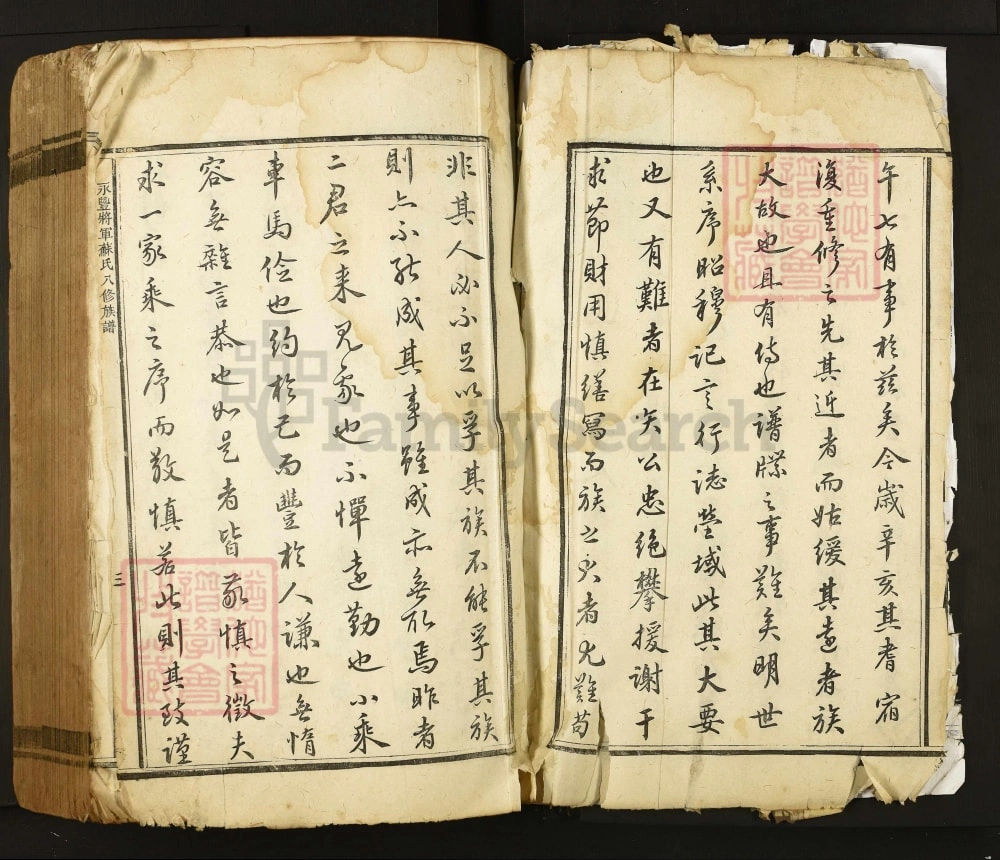 午七有事於茲矣今歲辛亥其耆宿
復重修之先其近者而姑緩其遠者族
大故也且有待也譜牒之事難矣明世
系序昭穆記言行誌塋域此其大要
也又有難者在矣公忠絕攀援謝干
求節財用慎繕寫而族之大者尤難苟
非其人必不足以孚其族不能孚其族
則亦不能成其事雖成亦無取焉昨者
二君之來見家也不憚遠勤也小乘
車馬儉也約於己而豐於人謙也無惰
容無雜言恭也如是者皆敬慎之徵夫
求一家乘之序而敬慎若此則其致謹
永豐將軍蘇氏八修族譜
三
FamilySearch